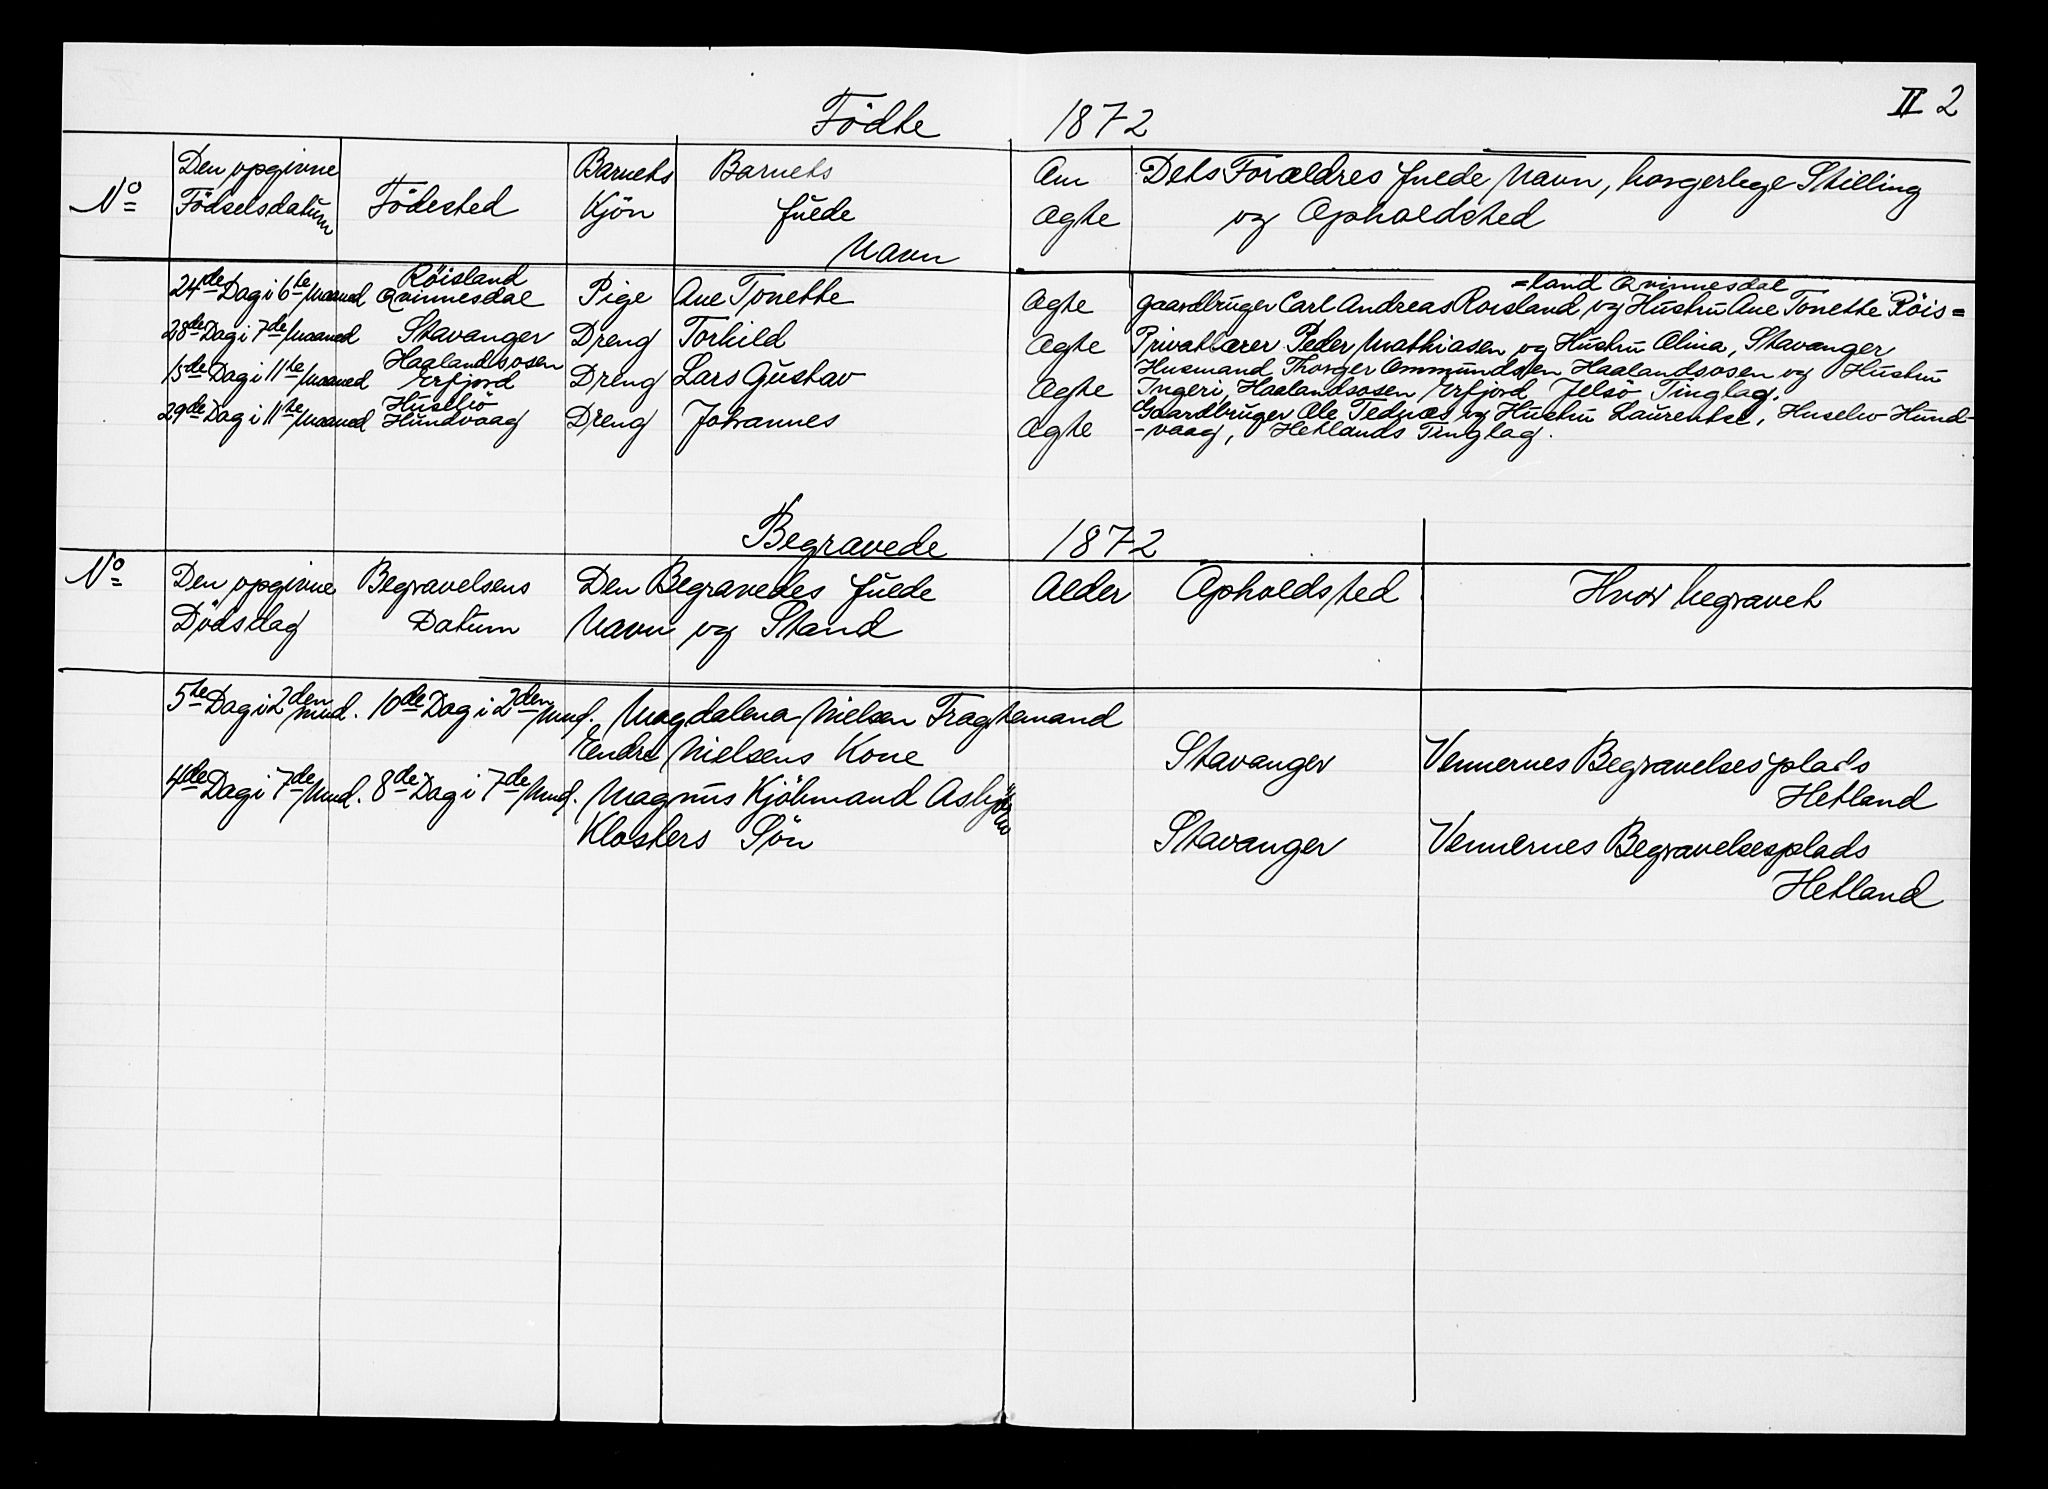 II 2
Födte 1872
No Den opgivne Födselsdatum Födested Barnets Kjön Barnets fulde Navn Om Ægte Dets Forældres fulde Navn, borgerlege Stilling og Opholdsted
24de Dag i 6te Maaned Röisland Qvinnesdal Pige Ane Tonette Ægte Gaardbruger Carl Andreas Roisland og Hustru Ane Tonette Röis=
=land Qvinnesdal
28de Dag i 7de Maaned Stavanger Dreng Torkild Ægte Privatlærer Peder Mathiasen og Hustru Alina, Stavanger
15de Dag i 11te Maaned Haalandsosen Erfjord Dreng Lars Gustav Ægte Husmand Thorger Ommundsen Haalandsosen og Hustru
Ingeri, Haalandsosen Erfjord Jelsö Tinglag.
29de Dag i 11te Maaned Husebö Hundvaag Dreng Johannes Ægte Gaardbruger Ole Tednæs og Hustru Laurentse, Husebo Hund-
-vaag, Hetlands Tinglag.
Begravede 1872
No Den opgivne Dödsdag Begravelsens Datum Den Begravedes fulde Navn og Stand Alder Opholdsted Hvor begravet
5te Dag i 2den Mnd. 10de Dag i 2den Mnd. Magdalena Nielsen Fragtemand
Endre Nielsens Kone Stavanger Vennernes Begravelsesplads
Hetland
4de Dag i 7de Mnd. 8de Dag i 7de Mnd. Magnus Kjöbmand Asbjörn
Klosters Sön Stavanger Vennernes Begravelsesplads
Hetland